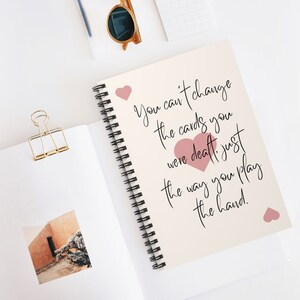 You can't change
the cards you
were dealt, just
the way you play
the hand.